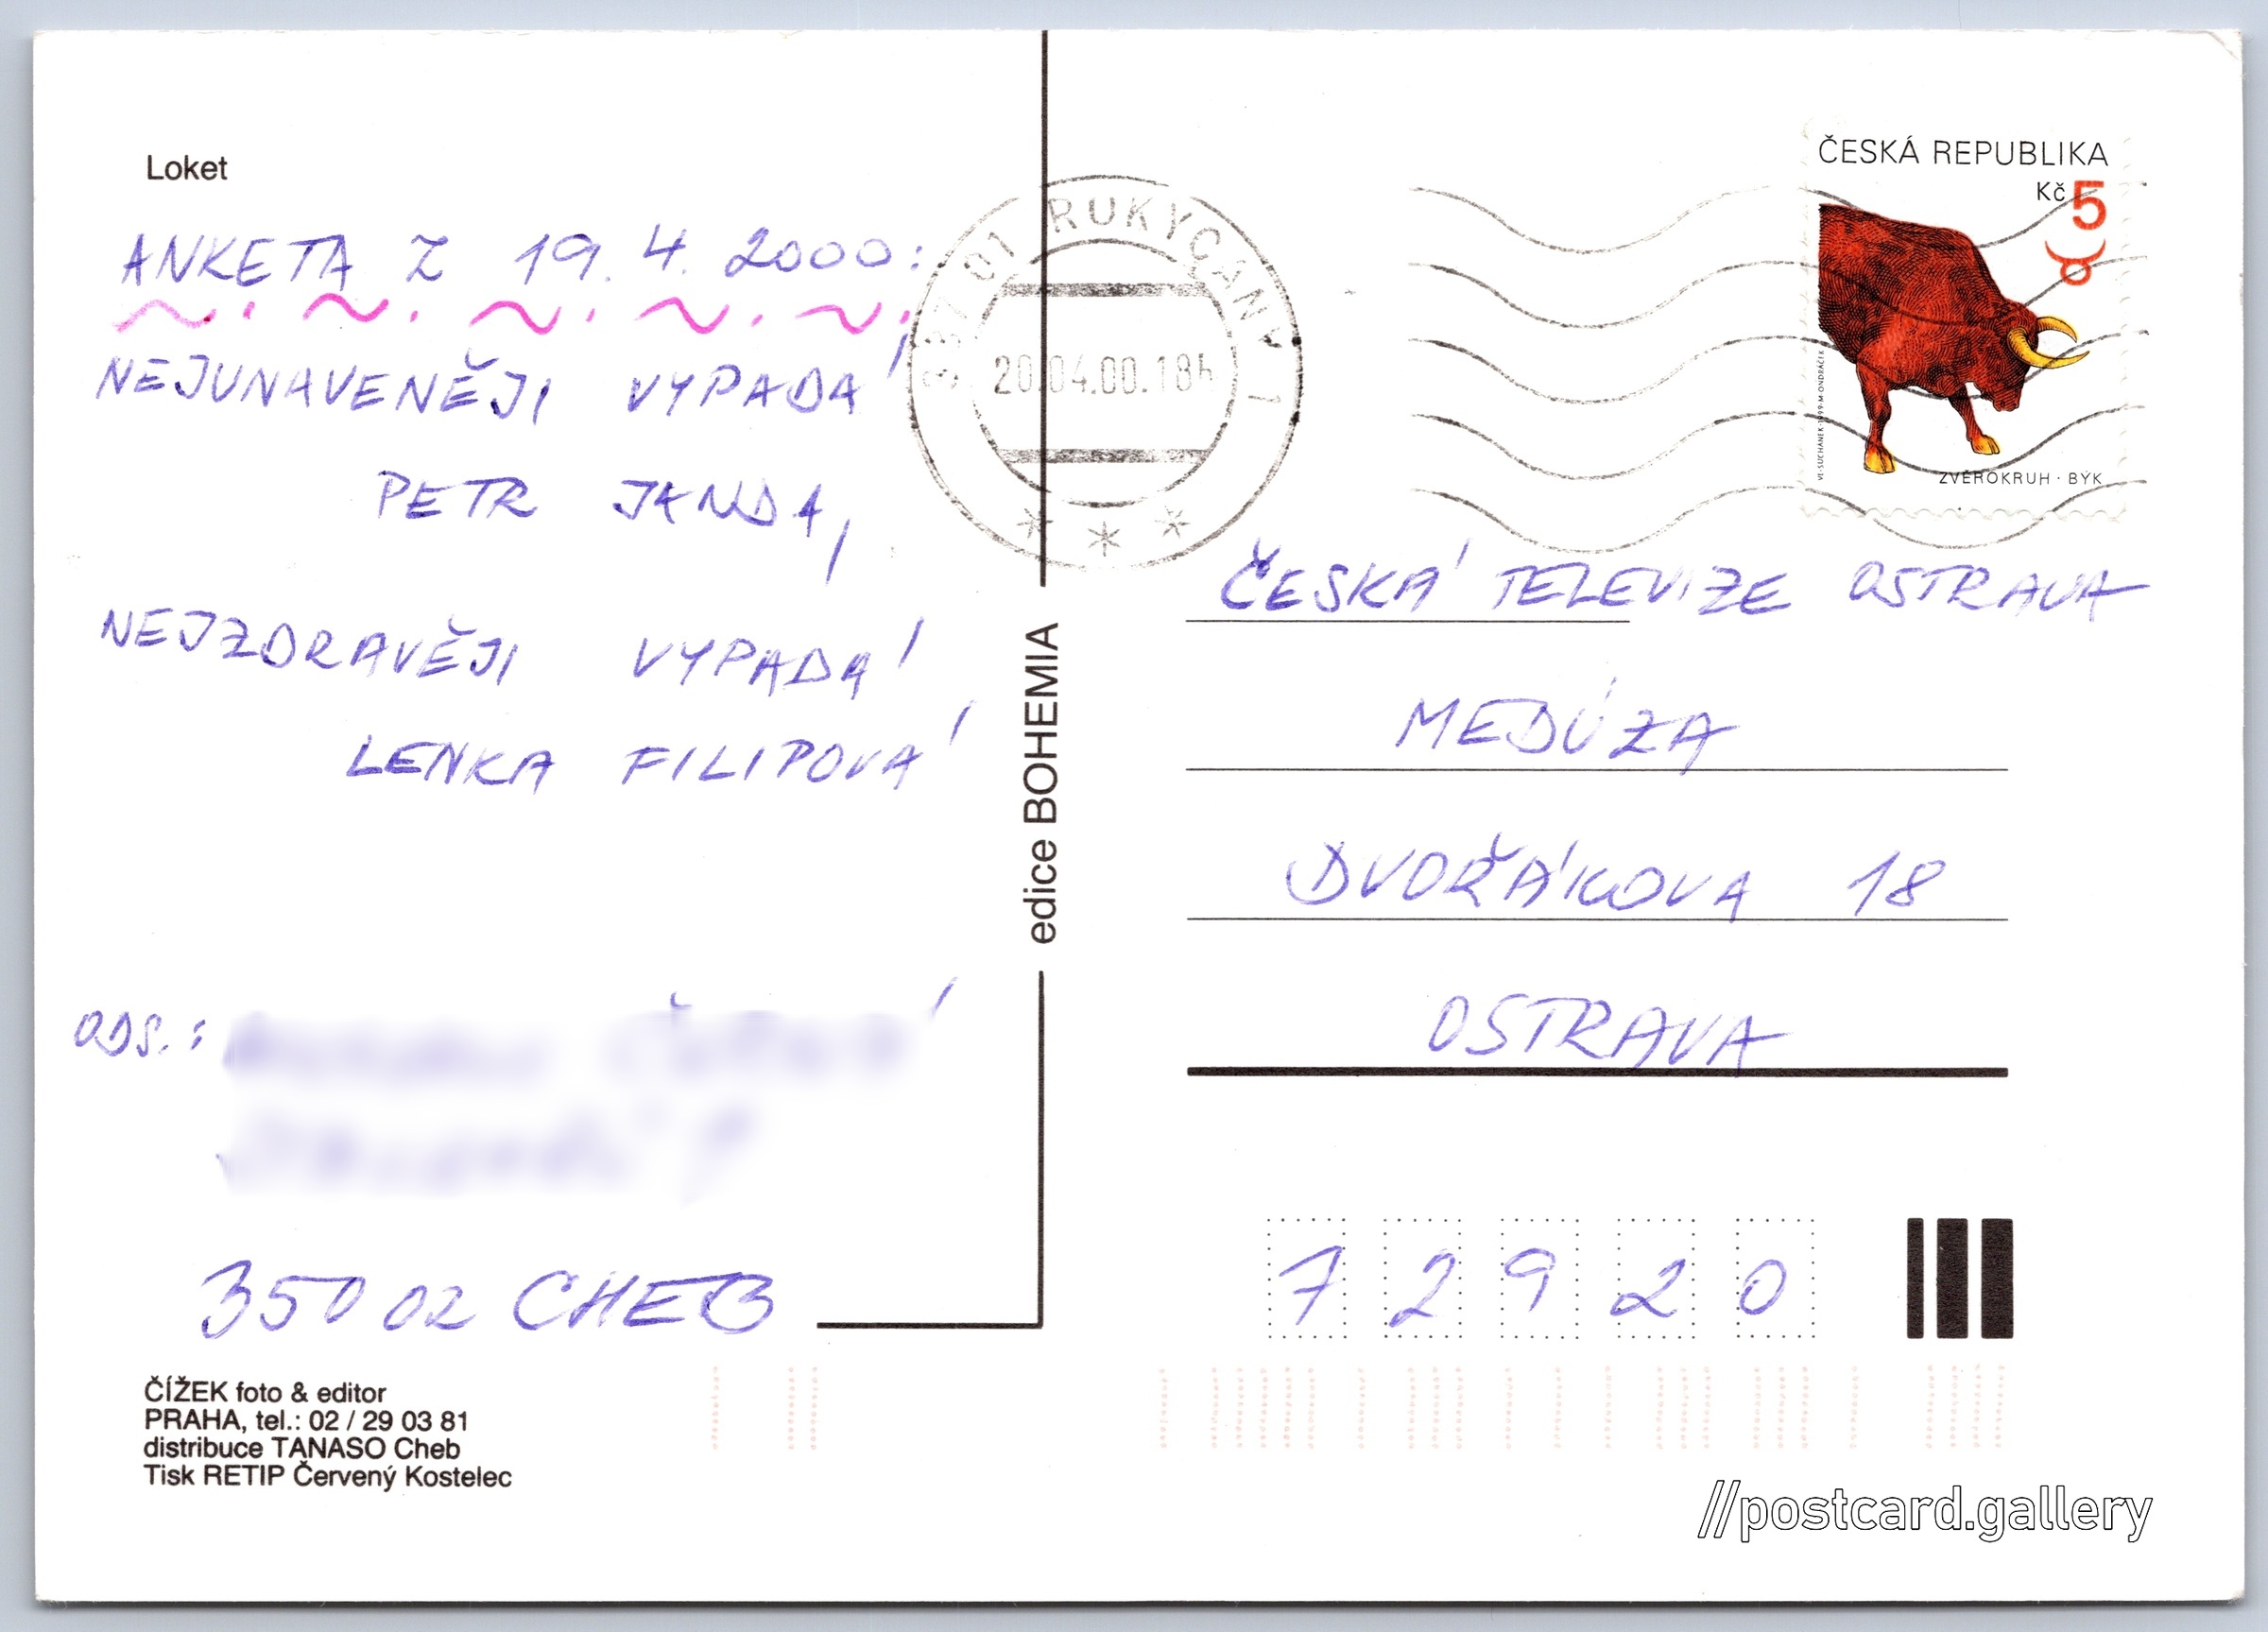 Loket
ANKETA Z 19. 4. 2000:
NEJUNAVENĚJI VYPADÁ
PETR JANDA,
NEJZDRAVĚJI VYPADÁ
LENKA FILIPOVÁ
ODS.:
350 02 CHEB
ČÍŽEK foto & editor
PRAHA, tel.: 02 / 29 03 81
distribuce TANASO Cheb
Tisk RETIP Červený Kostelec
edice BOHEMIA
337 01 ROKYCANY 1
20.04.00.18h
ČESKÁ REPUBLIKA
Kč 5
VL·SUCHÁNEK·1999·M·ONDRÁČEK
ZVĚROKRUH · BÝK
ČESKÁ TELEVIZE OSTRAVA
MEDÚZA
DVOŘÁKOVA 18
OSTRAVA
72920
//postcard.gallery